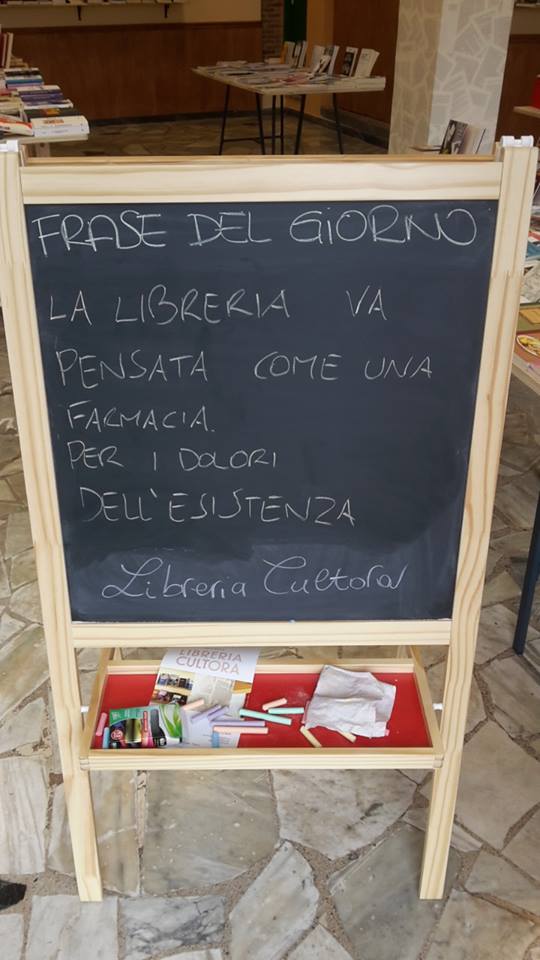 FRASE DEL GIORNO
LA LIBRERIA VA
PENSATA COME UNA
FARMACIA.
PER I DOLORI
DELL'ESISTENZA
Libreria Cultora
LIBRERIA
CULTORA